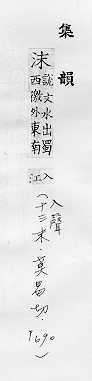 集韻
沬
說文水出蜀
西徼外東南
入江
(入聲
十三末.莫曷切.P.690)